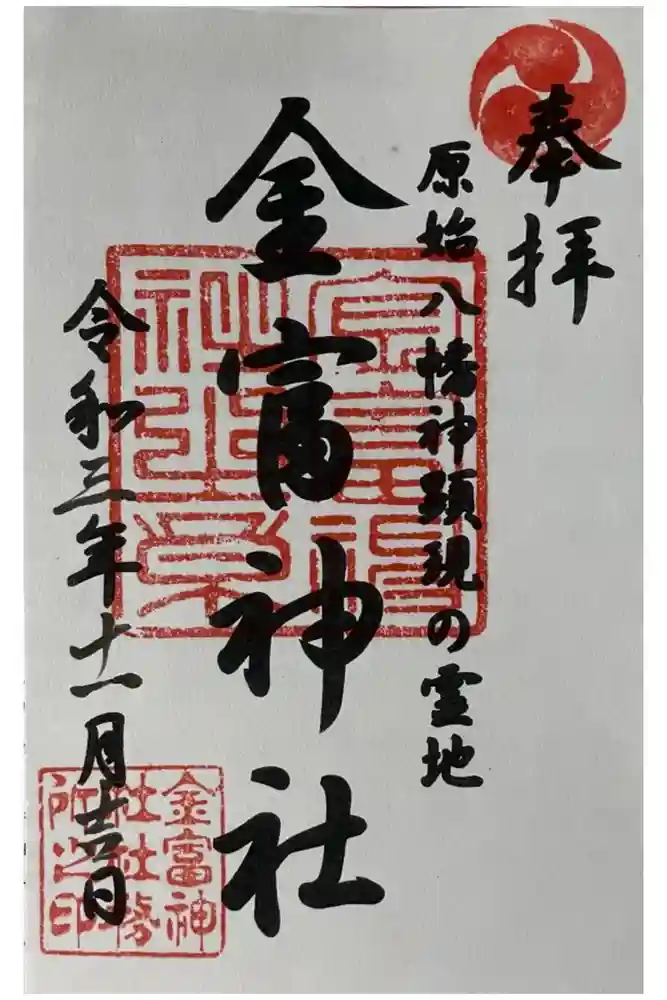 奉拝
原始八幡神顕現の霊地
金富神社
令和三年十一月十六日
金富神
社社務
所之印